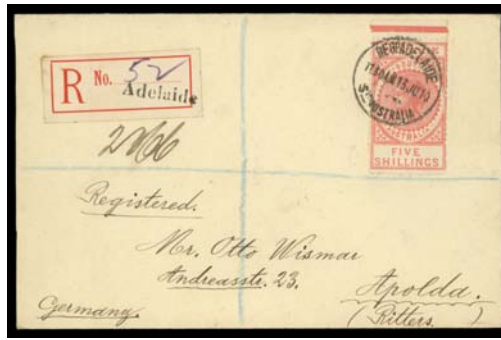 R No. 52
Adelaide
REG ADELAIDE
STH AUSTRALIA
AUSTRALIA
FIVE
SHILLINGS
Registered.
Mr. Otto Wismar
Andreasstr. 23.
Apolda.
Germany.
(Ritters.